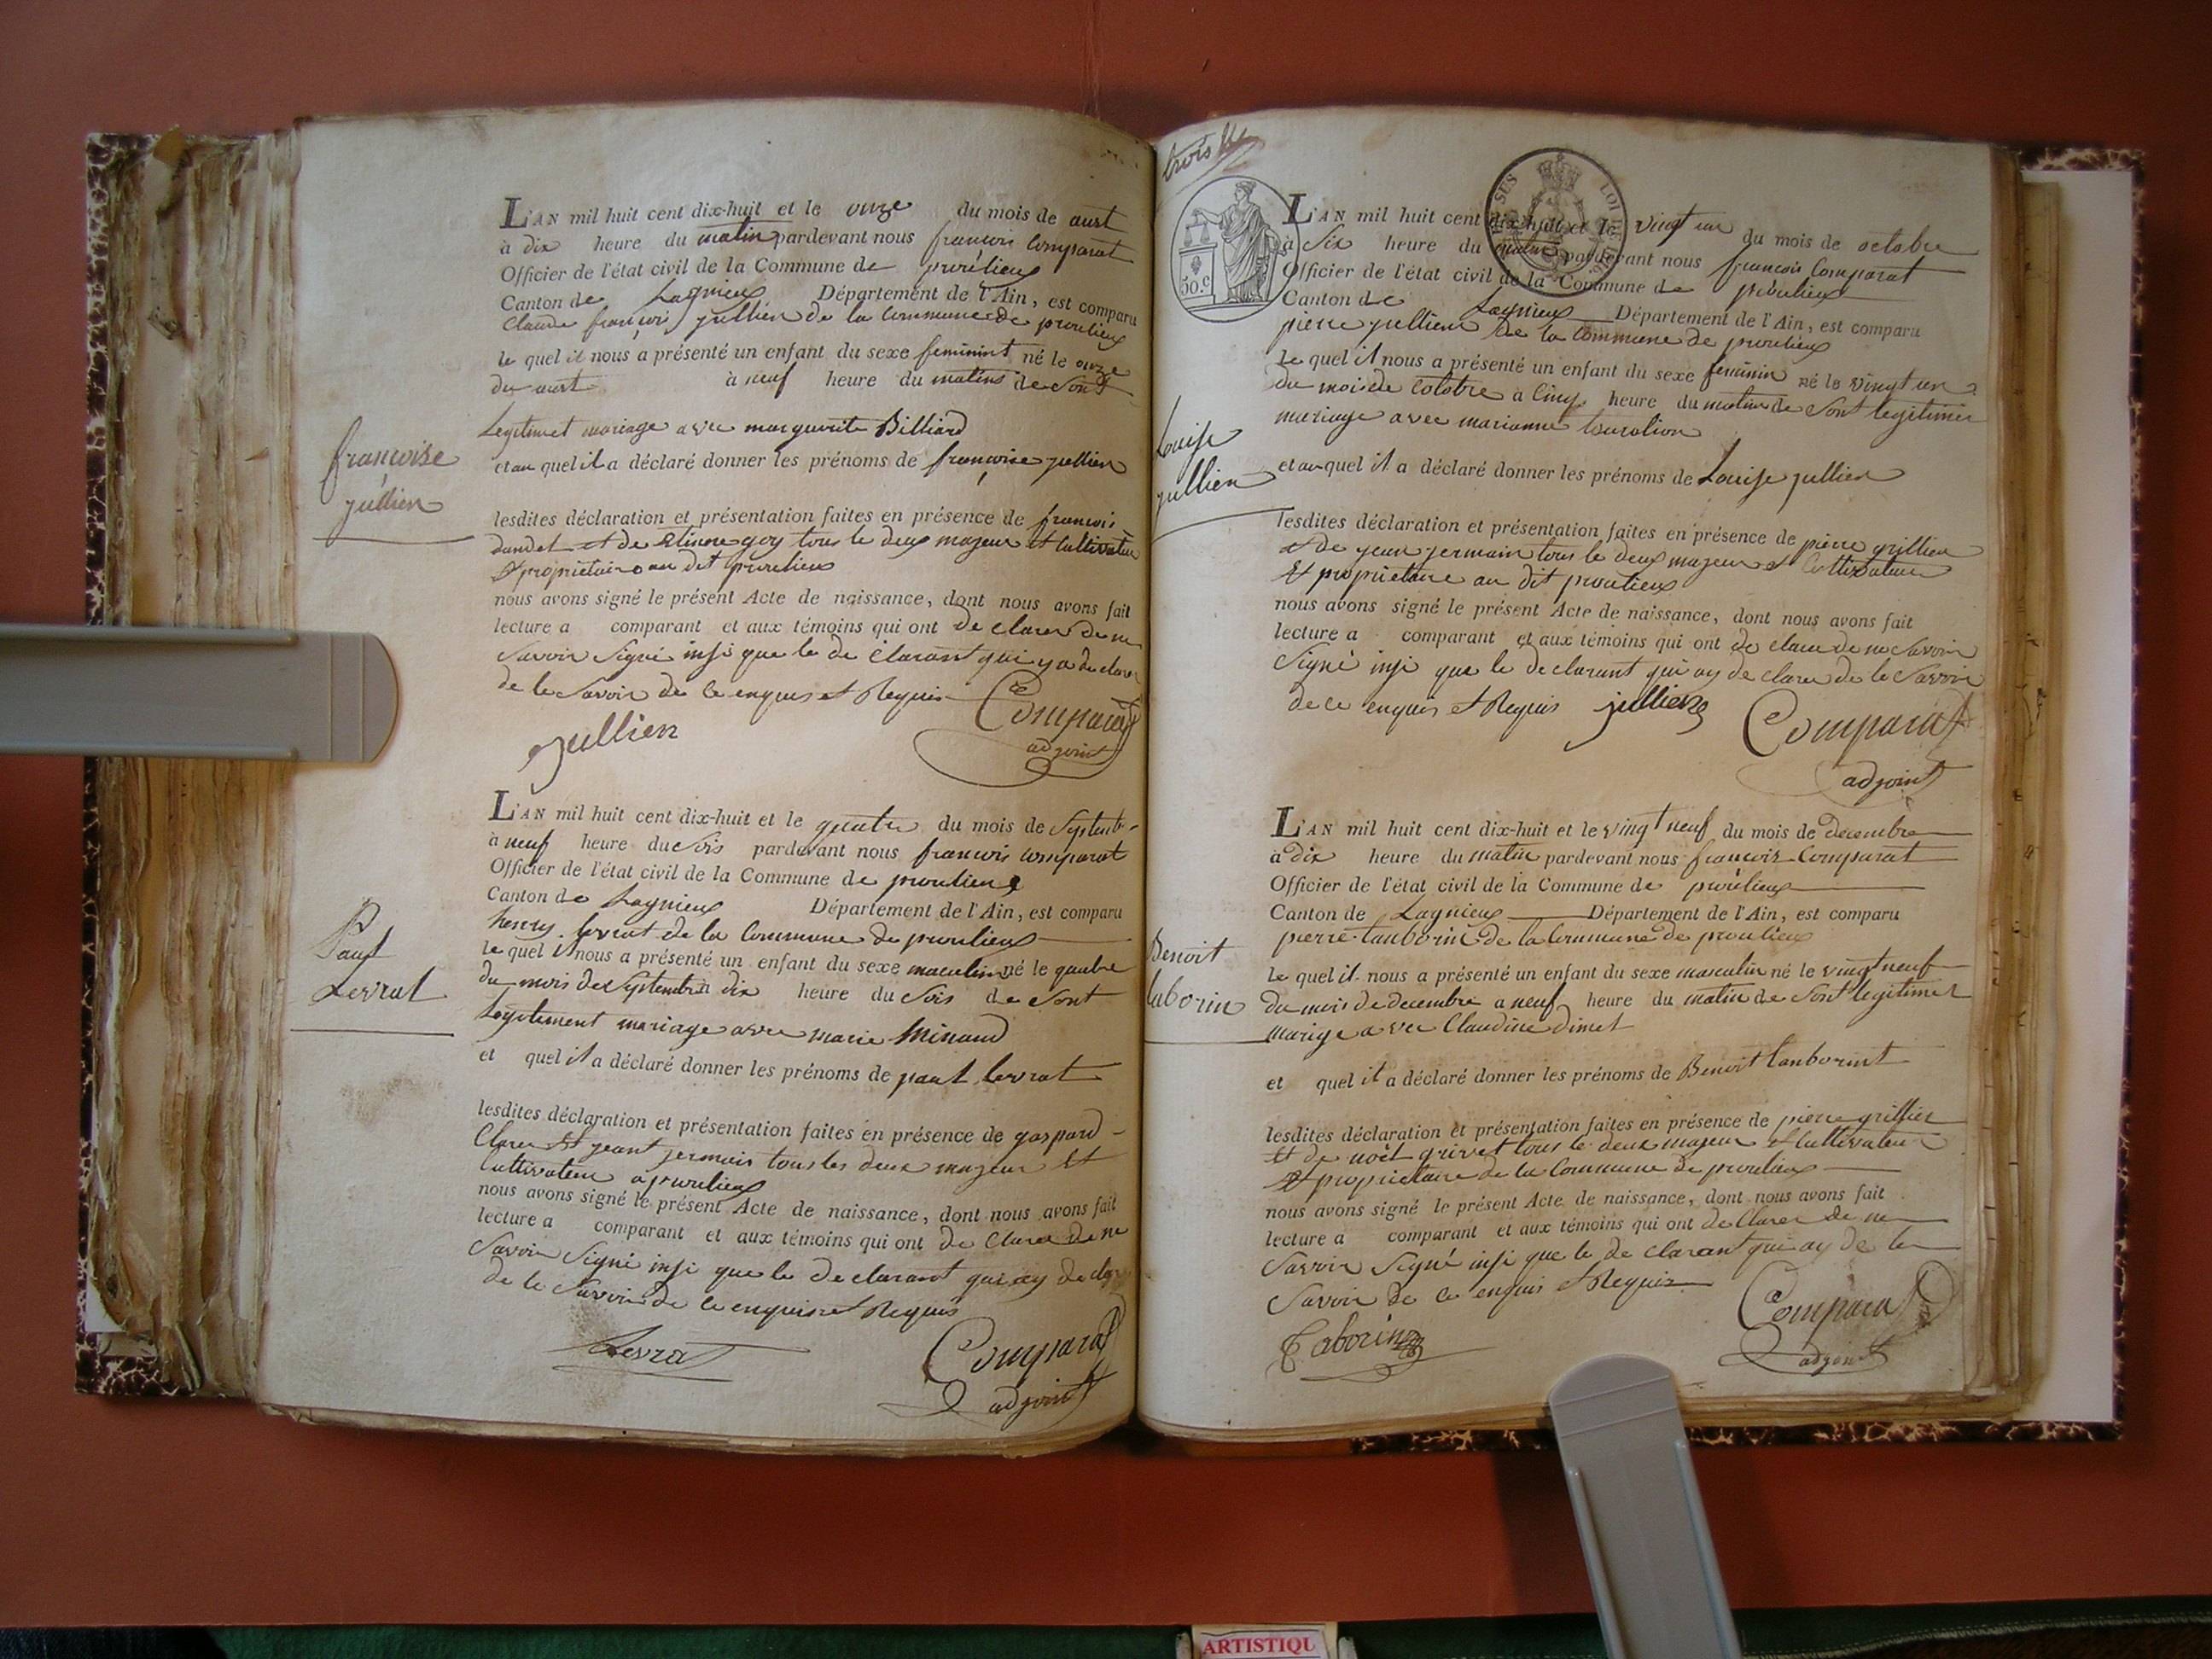 L'AN mil huit cent dix-huit et le onze du mois de aust
à dix heure du matin pardevant nous françois Comparat
Officier de l'état civil de la Commune de proulieux
Canton de Lagnieux Département de l'Ain, est comparu
Claude françois jullien de la Commune de proulieux
le quel il nous a présenté un enfant du sexe feminint né le onze
du aust à neuf heure du matins de sont
Legitimet mariage avec marguerite Billiard
françoise
jullien
et au quel il a déclaré donner les prénoms de françoise jullien
lesdites déclaration et présentation faites en présence de francois
dandel et de Etienne goy tous le deux majeur et Cultivateur
Et proprietaire au dit proulieux
nous avons signé le présent Acte de naissance, dont nous avons fait
lecture a comparant et aux témoins qui ont de clarer de ne
savoir signé insi que le de clarant qui y a de clarer
de le savoir de ce enquis et Requis
jullien
Comparat
adjoint
L'AN mil huit cent dix-huit et le quatre du mois de Septemb-
à neuf heure du soir pardevant nous françois comparat
Officier de l'état civil de la Commune de proulieux
Canton de Lagnieux Département de l'Ain, est comparu
henry levrat de la Commune de proulieux
Paul
Levrat
le quel il nous a présenté un enfant du sexe masculin né le quatre
du mois de Septembre à dix heure du soir de sont
Legitement mariage avec marie Minaud
et quel il a déclaré donner les prénoms de paul levrat
lesdites déclaration et présentation faites en présence de gaspard
Clerc Et jeant jermain tous les deux majeur Et
Cultivateur a proulieux
nous avons signé le présent Acte de naissance, dont nous avons fait
lecture a comparant et aux témoins qui ont de clarer de ne
Savoir Signé insi que le declarant qui ay de
de le Savoir de ce enquis et Requis
Levrat
Comparat
adjoint
trois
50.C
SUS LOI
L'AN mil huit cent dix-huit et le vingt un du mois de octobre
à Six heure du matin pardevant nous francois Comparat
Officier de l'état civil de la Commune de proulieux
Canton de Lagnieux Département de l'Ain, est comparu
pierre jullien de la Commune de proulieux
le quel il nous a présenté un enfant du sexe feminin né le vingt un
du mois de octobre à Cinq heure du matin de sont legitimer
mariage avec marianne
Louise
jullien
et au quel il a déclaré donner les prénoms de Louise jullien
lesdites déclaration et présentation faites en présence de pierre grillier
et de jean jermain tous le deux majeur et Cultivateur
Et proprietaire au dit proulieux
nous avons signé le présent Acte de naissance, dont nous avons fait
lecture a comparant et aux témoins qui ont de clarer de ne savoir
Signé insi que le declarant qui ay de clarer de le Savoir
de ce enquis et Requis jullien
Comparat
adjoint
L'AN mil huit cent dix-huit et le vingt neuf du mois de decembre
à dix heure du matin pardevant nous francois Comparat
Officier de l'état civil de la Commune de proulieux
Canton de Lagnieux Département de l'Ain, est comparu
pierre tanborin de la Commune de proulieux
Benoit
taborin
le quel il nous a présenté un enfant du sexe masculin né le vingt neuf
du mois de decembre a neuf heure du matin de sont legitimet
marige avec Claudine dimet
et quel il a déclaré donner les prénoms de Benoit tanborint
lesdites déclaration et présentation faites en présence de pierre grillier
Et de noël grivet tous le deux majeur et Cultivateur
Et proprietaire de la Commune de proulieux
nous avons signé le présent Acte de naissance, dont nous avons fait
lecture a comparant et aux témoins qui ont de Clarer de ne
Savoir Signé insi que le de clarant qui ay de le
Savoir de ce enquis et Requis
Taborin
Comparat
adjoint
ARTISTIQU